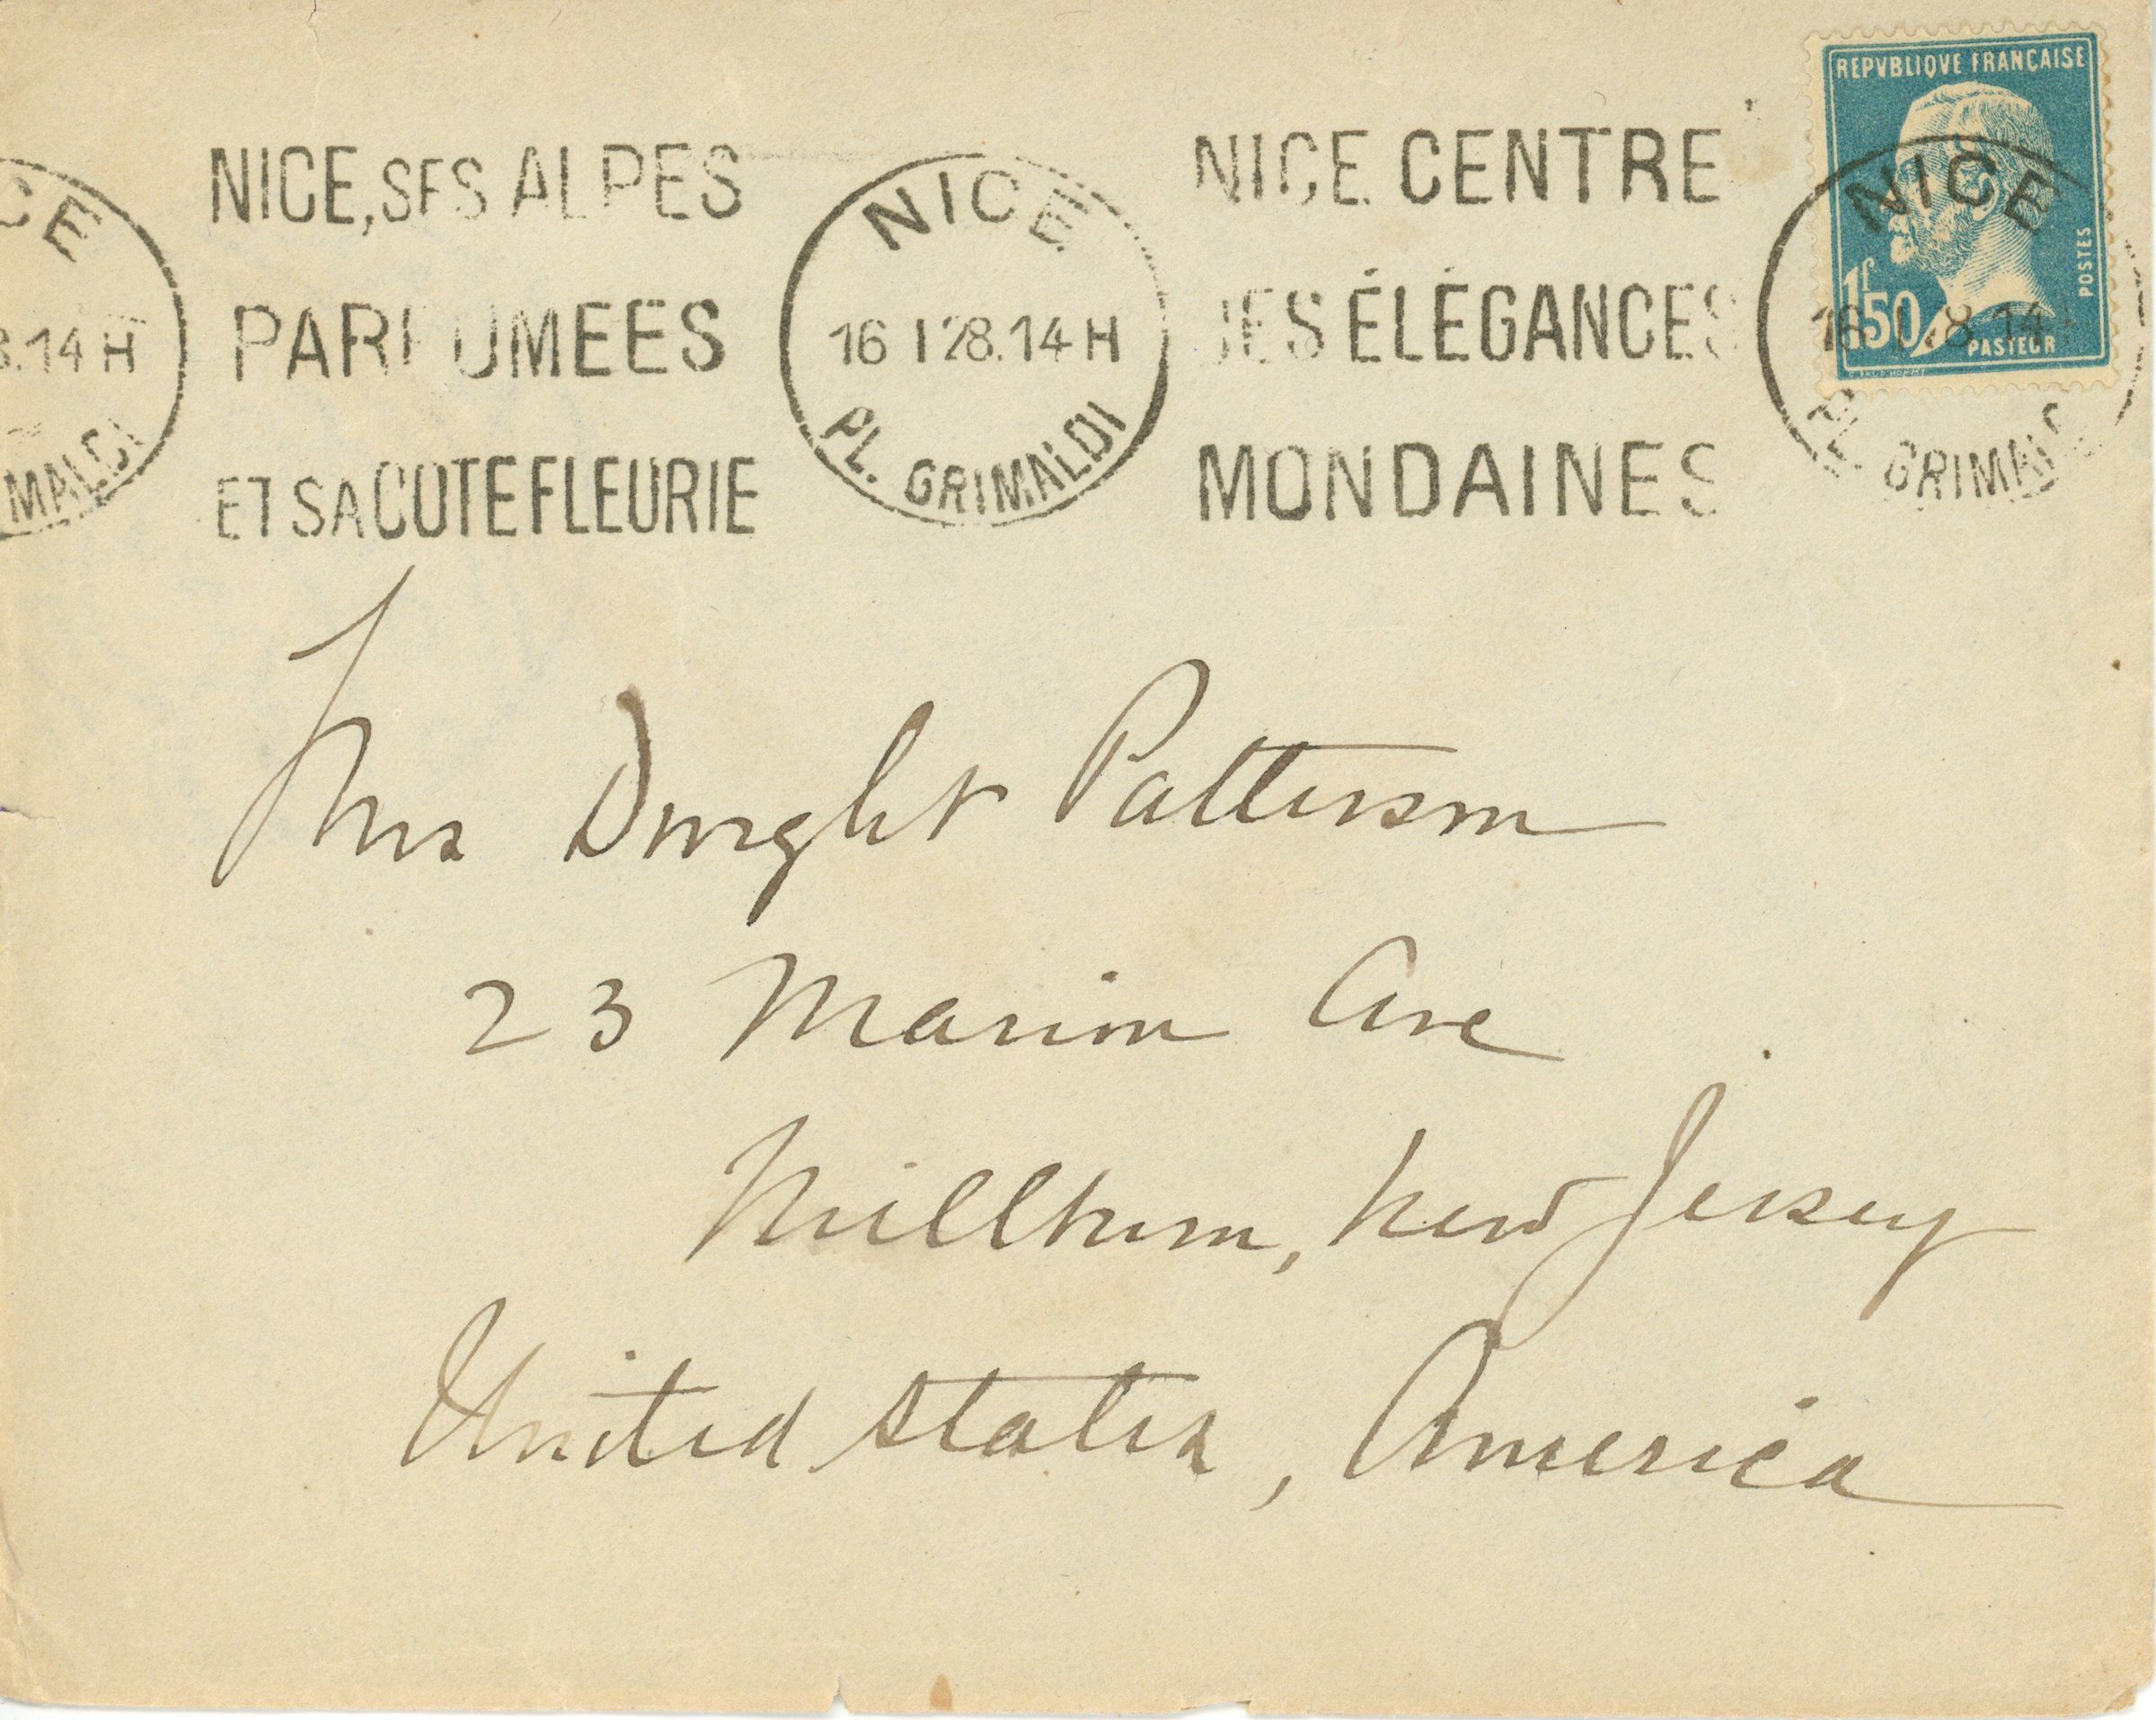 REPVBLIQVE FRANÇAISE
POSTES
1F50
PASTEUR
NICE, SES ALPES
PARFUMEES
ET SA COTE FLEURIE
NICE
16 I 28. 14 H
PL. GRIMALDI
NICE CENTRE
DES ÉLÉGANCES
MONDAINES
NICE
16 I 28. 14
PL. GRIMALD
CE
8. 14 H
MALDI
Mrs Dwight Patterson
23 Marion Ave
Millburn, New Jersey
United States, America